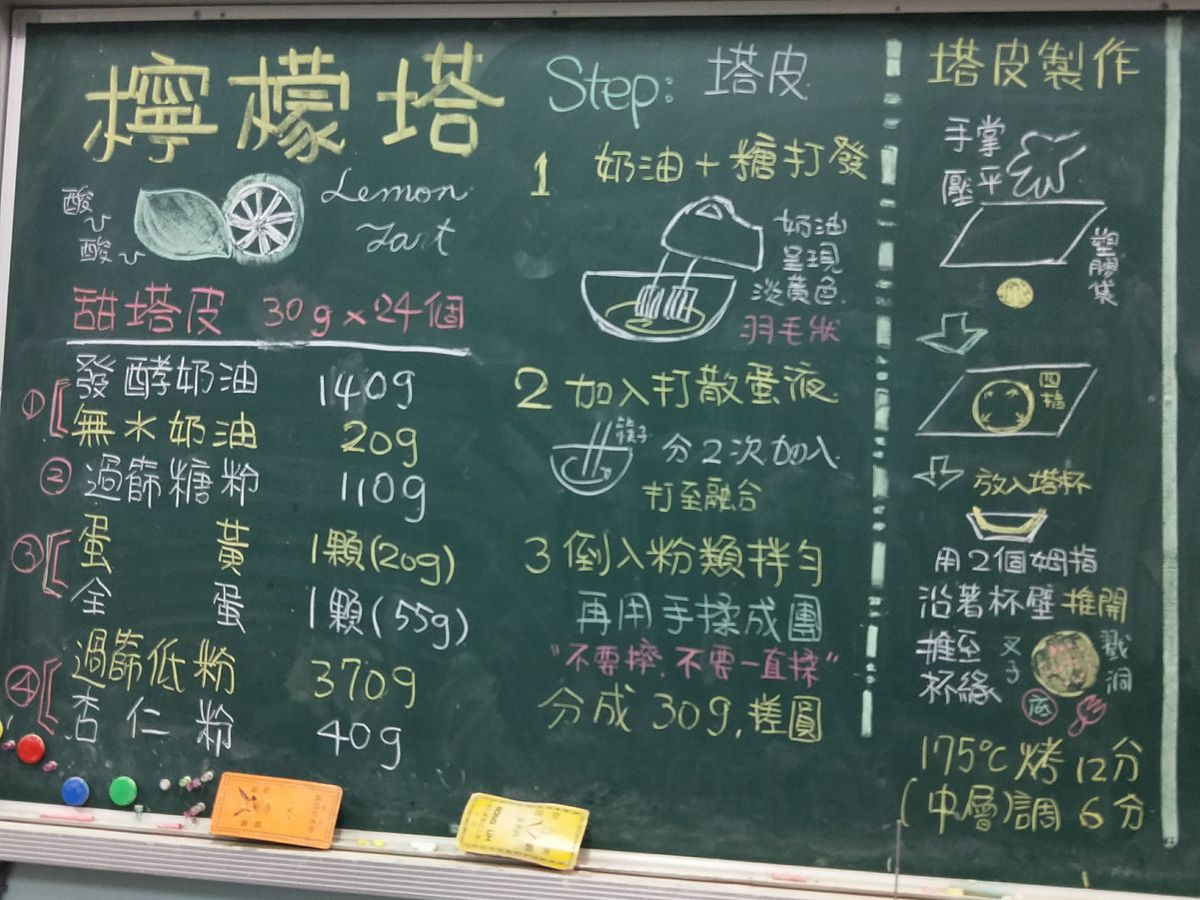 檸檬塔
酸
酸
Lemon
Tart
甜塔皮 30g×24個
① 發酵奶油 140g
無水奶油 20g
② 過篩糖粉 110g
③ 蛋黃 1顆(20g)
全蛋 1顆(55g)
④ 過篩低粉 370g
杏仁粉 40g
Step: 塔皮
1 奶油+糖打發
奶油
呈現
淡黃色
羽毛狀
2 加入打散蛋液
筷子
分2次加入
打至融合
3 倒入粉類拌勻
再用手揉成團
"不要擠.不要一直揉"
分成30g,搓圓
塔皮製作
手掌
壓平
塑膠袋
四指
放入塔杯
用2個姆指
沿著杯壁推開
推至
杯緣
叉子
戳洞
底
175℃烤12分
(中層)調6分
SUNG LIH